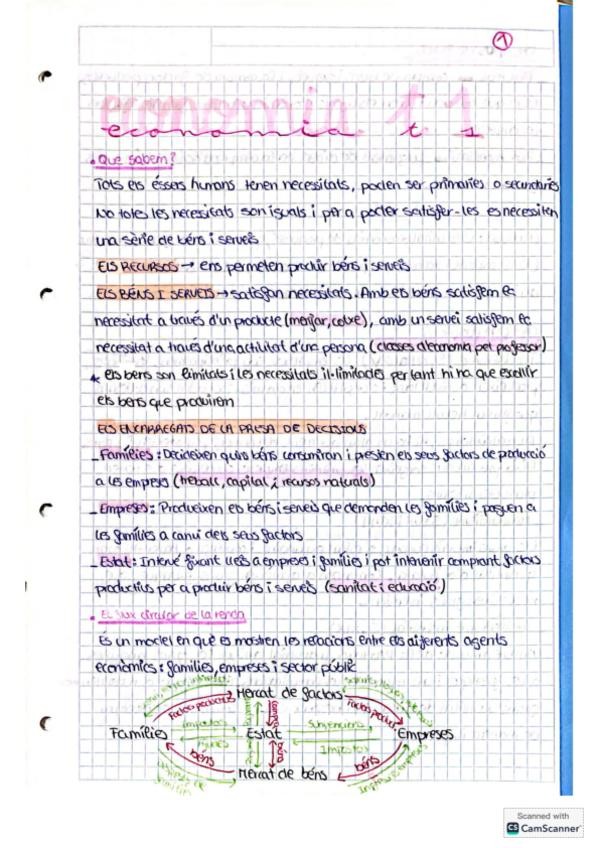 1
economia t 1
economia t 1
• Que sabem?
Tots els éssers humans tenen necessitats, poden ser primaries o secundaries
No totes les necessitats son iguals i per a poder satisfer-les es necessiten
una sèrie de béns i serveis
ELS RECURSOS → ens permeten produir béns i serveis
ELS BÉNS I SERVEIS → satisfan necessitats. Amb els béns satisfem la
necessitat a través d'un producte (menjar, cotxe), amb un servei satisfem la
necessitat a través d'una activitat d'una persona (classes d'economia pel professor)
* els bens son limitats i les necessitats il·limitades per tant hi ha que escollir
els bens que produirem
ELS ENCARREGATS DE LA PRESA DE DECISIONS
_ Famílies: Decideixen quins béns consumiran i presten els seus factors de producció
a les empreses (treball, capital i recursos naturals)
_ Empreses: Produeixen els béns i serveis que demanden les famílies i paguen a
les famílies a canvi dels seus factors
_ Estat: Intervé fixant lleis a empreses i famílies i pot intervenir comprant factors
productius per a produir béns i serveis (sanitat i educació)
• El flux circular de la renda
És un model en què es mostren les relacions entre els diferents agents
econòmics: famílies, empreses i sector públic
Mercat de factors
Factors productius
Factors productius
impostos
Subvencions
Famílies
Estat
Empreses
Impostos
béns
béns
Mercat de béns
Scanned with
CS CamScanner